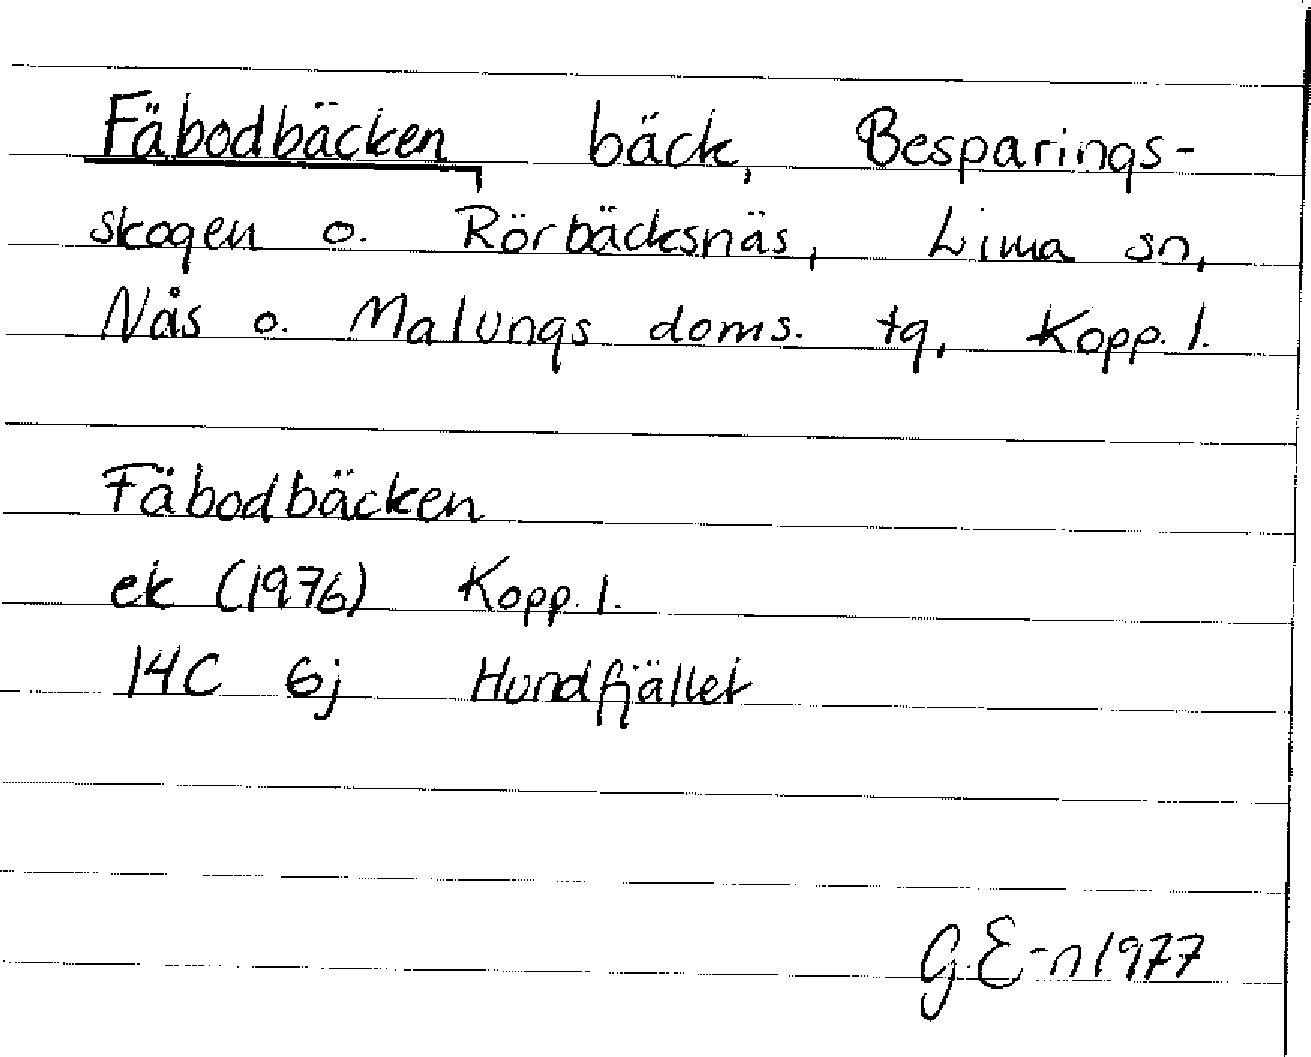 Fäbodbäcken bäck, Besparings-
skogen o. Rörbäcksnäs, Lima sn,
Nås o. Malungs doms. tg, Kopp. l.
Fäbodbäcken
ek (1976) Kopp. l.
14C 6j Hundfjället
G.E-n 1977